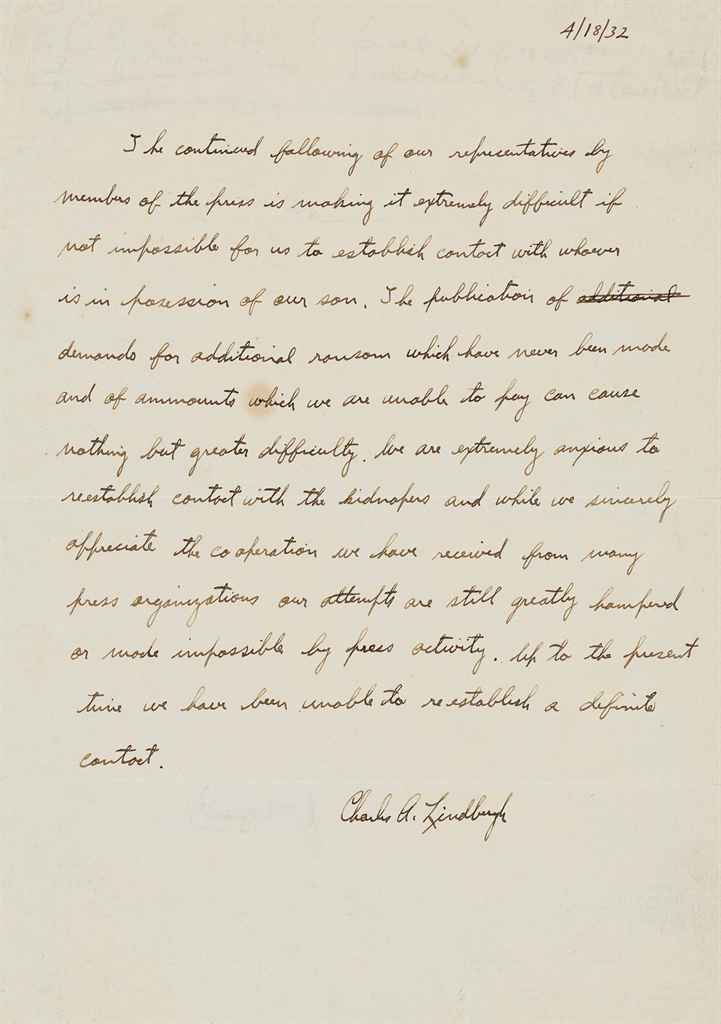 4/18/32
The continued following of our representatives by
members of the press is making it extremely difficult if
not impossible for us to establish contact with whoever
is in posession of our son. The publication of additional
demands for additional ransom which have never been made
and of ammounts which we are unable to pay can cause
nothing but greater difficulty. We are extremely anxious to
reestablish contact with the kidnapers and while we sincerely
appreciate the cooperation we have received from many
press organizations our attempts are still greatly hampered
or made impossible by press activity. Up to the present
time we have been unable to reestablish a definite
contact.
Charles A. Lindbergh